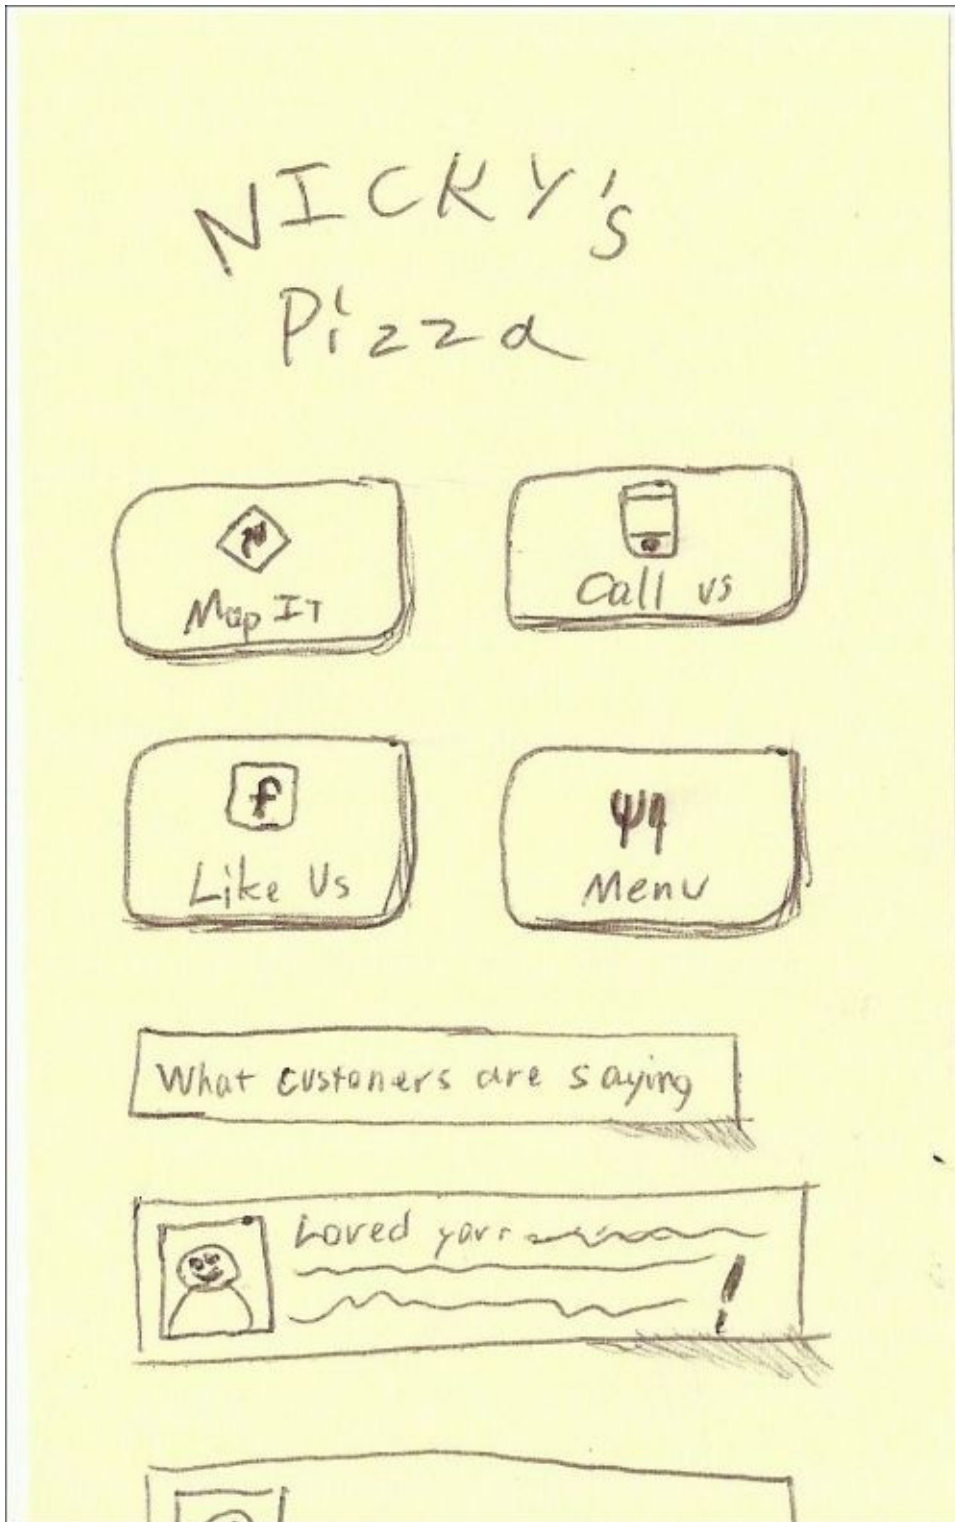 NICKY's
Pizza
Map IT
Call us
f
Like Us
Menu
What customers are saying
Loved your
!